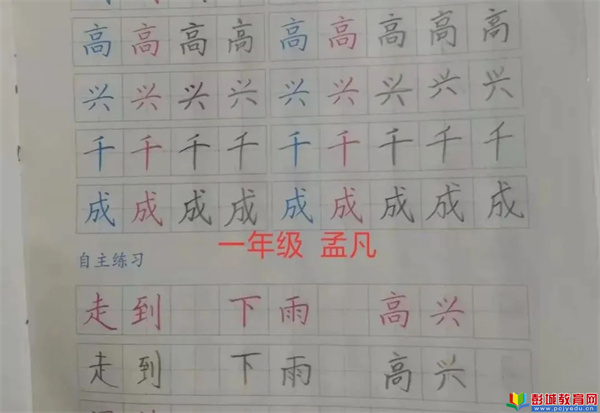 高高高高高高高高高
兴兴兴兴兴兴兴兴兴
千千千千千千千千千
成成成成成成成成成
一年级 孟凡
自主练习
走到 下雨 高兴
走到 下雨 高兴
彭城教育网
www.pcjyedu.cn